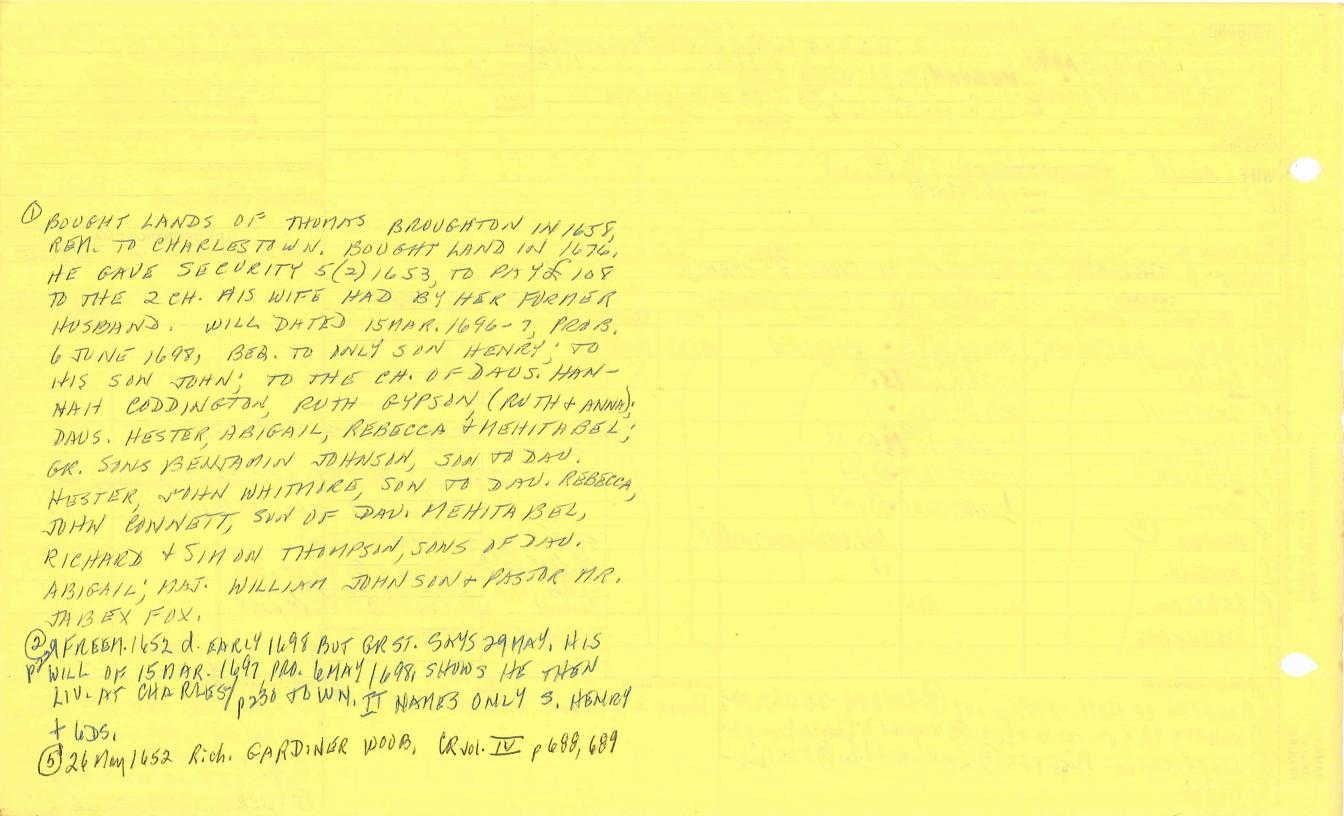 ① BOUGHT LANDS OF THOMAS BROUGHTON IN 1658,
REM. TO CHARLESTOWN. BOUGHT LAND IN 1676.
HE GAVE SECURITY 5(2)1653, TO PAY £108
TO THE 2 CH. HIS WIFE HAD BY HER FORMER
HUSBAND. WILL DATED 15 MAR. 1696-7, PROB.
6 JUNE 1698, BEQ. TO ONLY SON HENRY; TO
HIS SON JOHN; TO THE CH. OF DAUS. HAN-
NAH CODDINGTON, RUTH GYPSON, (RUTH & ANNA);
DAUS. HESTER, ABIGAIL, REBECCA & MEHITABEL;
GR. SONS BENJAMIN JOHNSON, SON TO DAU.
HESTER, JOHN WHITMORE, SON TO DAU. REBECCA,
JOHN CONNETT, SON OF DAU. MEHITABEL,
RICHARD & SIMON THOMPSON, SONS OF DAU.
ABIGAIL; MAJ. WILLIAM JOHNSON & PASTOR MR.
JABEX FOX.
② p229 FREEM. 1652 d. EARLY 1698 BUT GRST. SAYS 29 MAY. HIS
WILL OF 15 MAR. 1697, PRO. 6 MAY 1698, SHOWS HE THEN
LIV. AT CHARLES/p230 TOWN. IT NAMES ONLY S. HENRY
+ 6 DS.
⑤ 26 May 1652 Rich. GARDINER WOOB. CR vol. IV p 688, 689